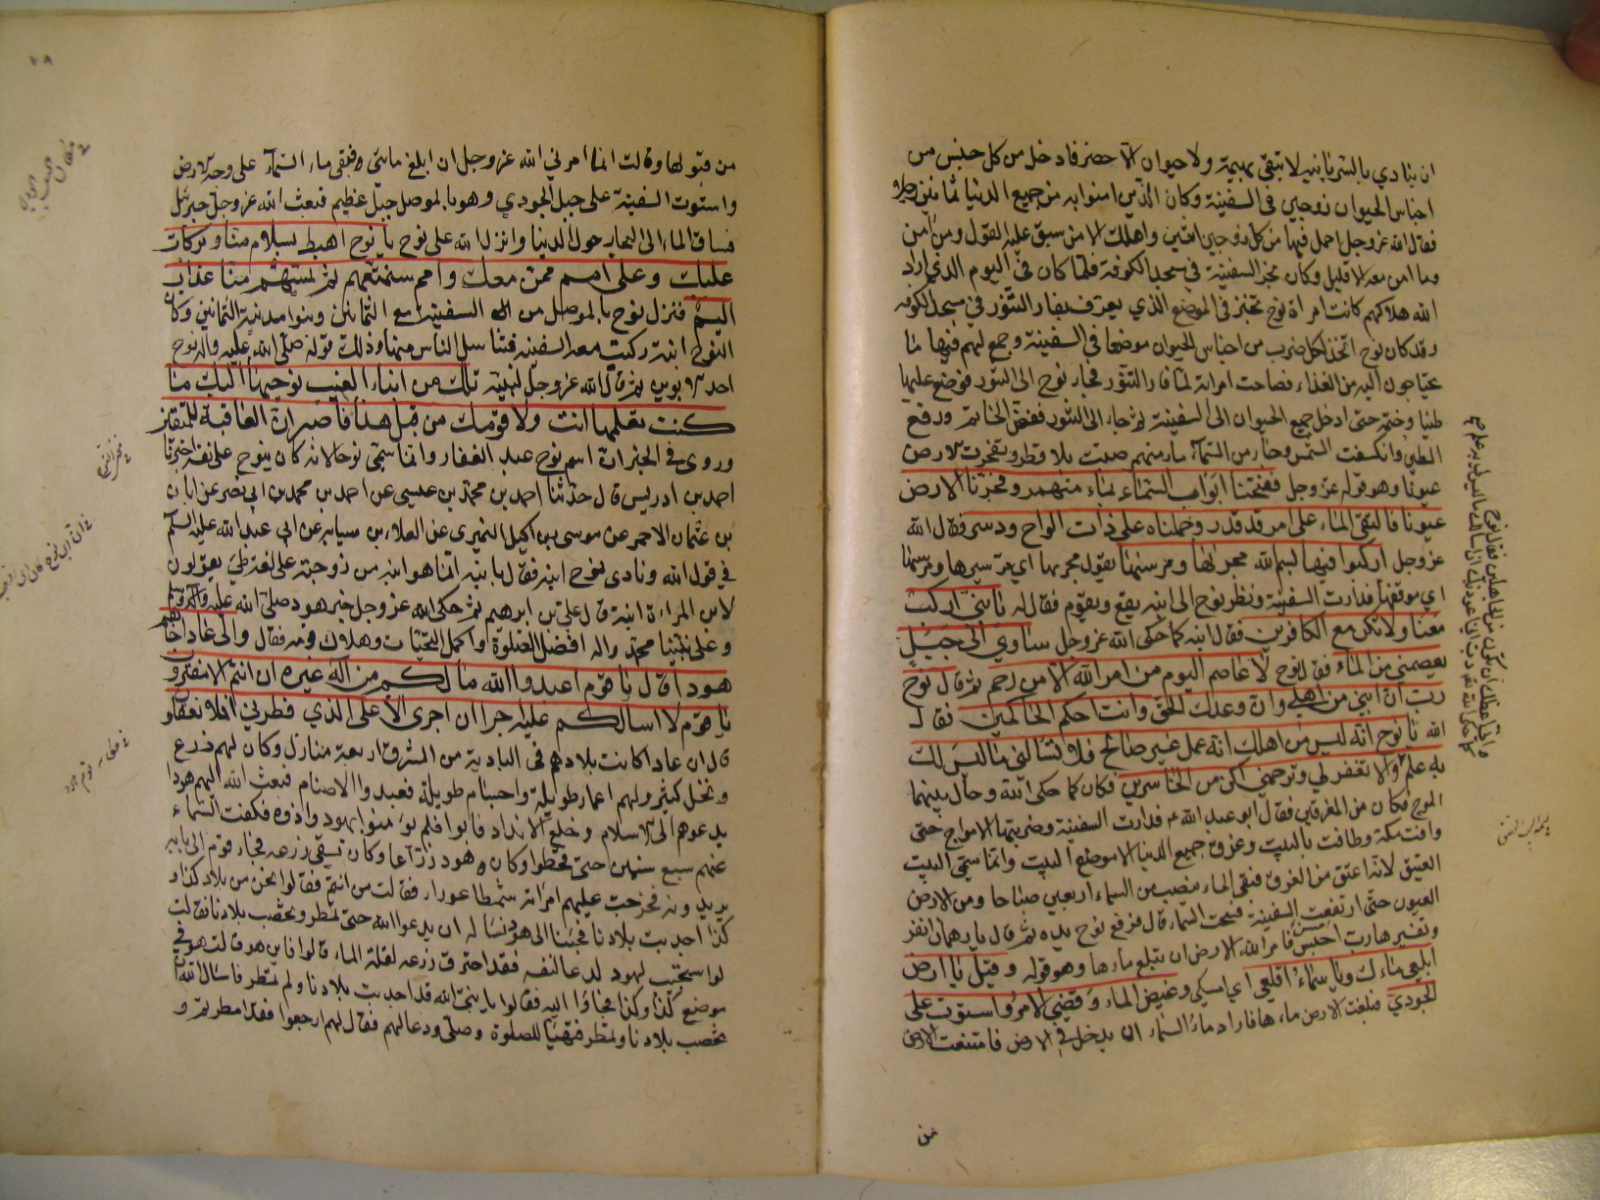 ان ينادي بالسريانية لا تبقى بهيمة ولا حيوان الا حضر فادخل من كل جنس من
اجناس الحيوان زوجين في السفينة وكان الذين امنوا به من جميع الدنيا ثمانين رجلا
فقال الله عز وجل احمل فيها من كل زوجين اثنين واهلك الا من سبق عليه القول ومن آمن
وما امن معه الا قليل وكان نجر السفينة في مسجد الكوفة فلما كان في اليوم الذي اراد
الله هلاكهم كانت امراة نوح تخبز في الموضع الذي يعرف بفار التنور في مسجد الكوفه
وقد كان نوح اتخذ لكل ضرب من اجناس الحيوان موضعا في السفينة وجمع لهم فيها ما
يحتاجون اليه من الغذاء فصاحت امراته لما فار التنور فجاء نوح الى التنور فوضع عليها
طينا وختمه حتى ادخل جميع الحيوان الى السفينة ثم جاء الى التنور ففض الخاتم ورفع
الطين وانكسفت الشمس وجاء من السماء ماء منهمر صب بلا قطر وتفجرت الارض
عيونا وهو قوله عز وجل ففتحنا ابواب السماء بماء منهمر وفجرنا الارض
عيونا فالتقى الماء على امر قد قدر وحملناه على ذات الواح ودسر فقال الله
عز وجل اركبوا فيها بسم الله مجريها ومرسيها يقول مجريها اي مسيرها ومرسيها
اي موقفها فدارت السفينة ونظر نوح الى ابنه يقع ويقوم فقال له يا بني اركب
معنا ولا تكن مع الكافرين فقال ابنه كما حكى الله عز وجل ساوي الى جبل
يعصمني من الماء فقال نوح لا عاصم اليوم من امر الله الا من رحم ثم قال نوح
رب ان ابني من اهلي وان وعدك الحق وانت احكم الحاكمين فقال
الله يا نوح انه ليس من اهلك انه عمل غير صالح فلا تسالني ما ليس لك
به علم والا تغفر لي وترحمني اكن من الخاسرين فكان كما حكى الله وحال بينهما
الموج فكان من المغرقين فقال ابو عبد الله ع فدارت السفينة وضربتها الامواج حتى
وافت مكة وطافت بالبيت وغرق جميع الدنيا الا موضع البيت وانما سمي البيت
العتيق لانه اعتق من الغرق فبقي الماء ينصب من السماء اربعين صباحا ومن الارض
العيون حتى ارتفعت السفينة فسحت السماء قال فرفع نوح يده ثم قال يا رهمان اتفر
وتفسيرها رب احبس فامر الله الارض ان تبلع ماءها وهو قوله وقيل يا ارض
ابلعي ماءك ويا سماء اقلعي اي امسكي وغيض الماء وقضي الامر واستوت على
الجودي فبلعت الارض ماءها فاراد ماء السماء ان يدخل في الارض فامتنعت الارض
من
من قبولها وقالت انما امرني الله عز وجل ان ابلع مائي فبقي ماء السماء على وجه الارض
واستوت السفينة على جبل الجودي وهو بالموصل جبل عظيم فبعث الله عز وجل جبرئيل
فساق الماء الى البحار حول الدنيا وانزل الله على نوح يا نوح اهبط بسلام منا وبركات
عليك وعلى امم ممن معك وامم سنمتعهم ثم تمسهم منا عذاب
اليم فنزل نوح بالموصل من السفينة مع الثمانين وبنوا مدينة الثمانين وكان
لنوح ابنة ركبت معه السفينة فتناسل الناس منها وذلك قوله صلى الله عليه واله نوح
احد الابوين ثم قال الله عز وجل لنبيه تلك من انباء الغيب نوحيها اليك ما
كنت تعلمها انت ولا قومك من قبل هذا فاصبر ان العاقبة للمتقين
وروي في الخبر ان اسم نوح عبد الغفار وانما سمي نوحا لانه كان ينوح على نفسه اخبرنا
احمد بن ادريس قال حدثنا احمد بن محمد بن عيسى عن احمد بن محمد بن ابي نصر عن ابان
بن عثمان الاحمر عن موسى بن اكيل النميري عن العلاء بن سيابه عن ابي عبد الله عليه السلم
في قول الله ونادى نوح ابنه فقال ليس بابنه انما هو ابنه من زوجته على لغة طي يقولون
لابن المراة ابنه قال علي بن ابرهيم ثم حكى الله عز وجل خبر هود صلى الله عليه وآله وسلم
وعلى نبينا محمد واله افضل الصلوة واكمل التحيات وهلاك قومه فقال والى عاد اخاهم
هودا قال يا قوم اعبدوا الله ما لكم من اله غيره ان انتم الا مفترون
يا قوم لا اسالكم عليه اجرا ان اجري الا على الذي فطرني افلا تعقلون
قال ان عادا كانت بلادهم في البادية من المشرق اربعة منازل وكان لهم زرع
ونخل كثير ولهم اعمار طويلة واجسام طويلة فعبدوا الاصنام فبعث الله اليهم هودا
يدعوهم الى الاسلام وخلع الانداد فابوا فلم يؤمنوا بهود واذوه فكفت السماء
عنهم سبع سنين حتى قحطوا وكان هود زراعا وكان يسقي زرعه فجاء قوم الى بابه
يريدونه فخرجت عليهم امراته شمطا عوراء فقالت من انتم فقالوا نحن من بلاد كذا و
كذا اجدبت بلادنا فجئنا الى هود نساله ان يدعو الله حتى تمطر وتخصب بلادنا فقالت
لو استجيب لهود لدعا لنفسه فقد احترق زرعه لقلة الماء قالوا فاين هو قالت هو في
موضع كذا وكذا فجاؤا اليه فقالوا يا نبي الله قد اجدبت بلادنا ولم تمطر فاسال الله ان
تخصب بلادنا وتمطر فتهيا للصلوة وصلى ودعا لهم فقال لهم ارجعوا فقد امطرتم و